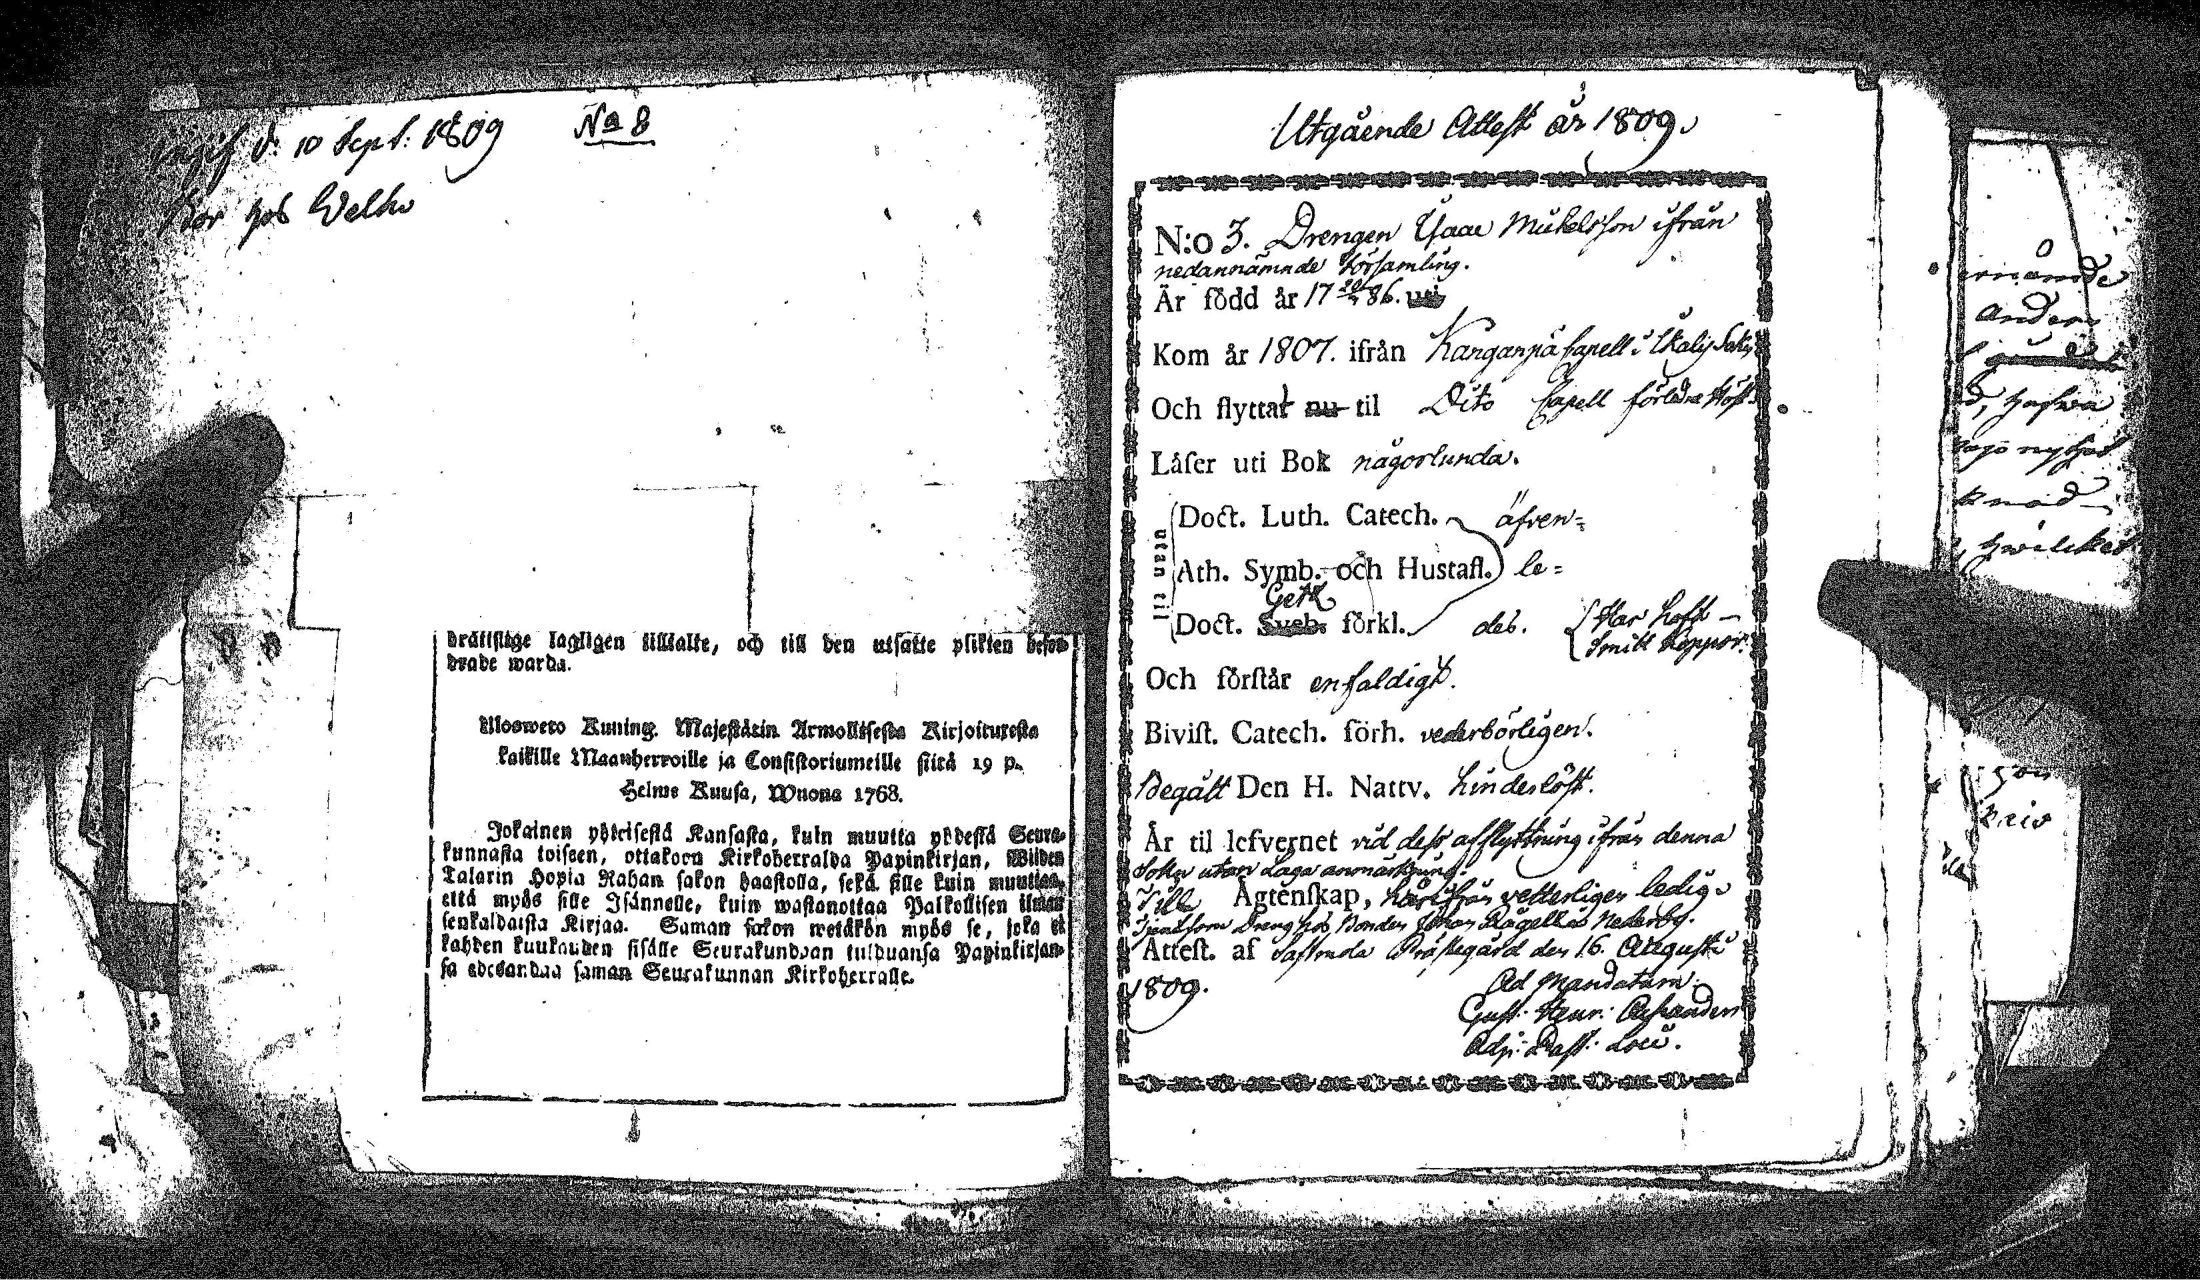 d. 10 Sept: 1809 No 8
Bor hos Welho
drättslige lagligen tilltalte, och till den utsatte plikten befor-
drade warda.
Ulosweto Kuning. Majestätin Armollisesta Kirjoituxesta
kaikille Maanherroille ja Consistoriumeille siitä 19 p.
Helme Kuusa, Wuona 1768.
Jokainen yhteisestä Kansasta, kuin muutta yhdestä Seura-
kunnasta toiseen, ottakoon Kirkoherralda Papinkirjan, Wiiden
Talarin Hopia Rahan sakon haastolla, sekä sille kuin muuttaa,
että myös sille Isännelle, kuin wastanottaa Palkollisen ilman
senkaldaista Kirjaa. Saman sakon wetäkön myös se, joka ei
kahden kuukauden sisälle Seurakundaan tulduansa Papinkirjan-
sa edesandaa saman Seurakunnan Kirkoherralle.
Utgående Attest år 1809.
N:o 3. Drengen Isaac Mickelsson ifrån
nedannämnde Församling.
Är född år 17 86. uti
Kom år 1807. ifrån Kanganpä Capell i Ikalis
Och flyttat nu til Dito Capell förledne Höst.
Läser uti Bok någorlunda.
utan til
Doct. Luth. Catech. äfven=
Ath. Symb. och Hustafl. le=
Doct. Sveb. förkl. des. Har haft
Smitt Koppor.
Och förstår enfaldigt.
Bivist. Catech. förh. vederbörligen.
Begått Den H. Nattv. hinderlöst.
Är til lefvernet vid dess afflyttning ifrån denna
Sokn utan Laga anmärkning.
Till Ägtenskap, härifrån vetterligen ledig.
Tjent som Dreng hos Bonden Johan Nederby.
Attest. af Safmola Prästegård den 16. Augusti
1809. Ad Mandatum
Gust: Henr:
Adj: Past: Loci.
anders
hafwa
hwilket